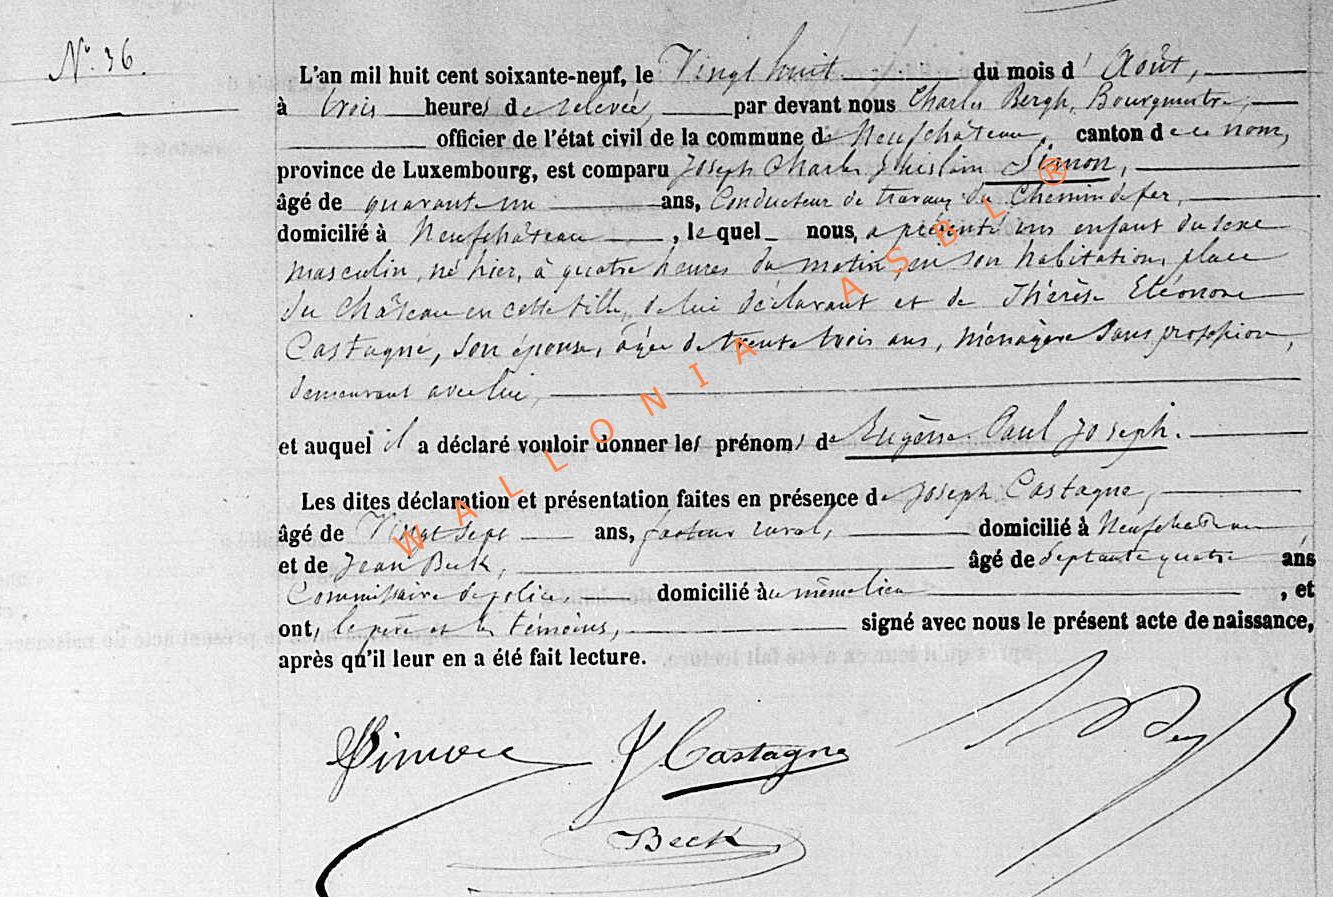 N° 36.
L'an mil huit cent soixante-neuf, le Vingt huit du mois d'Août,
à trois heures de relevée, par devant nous Charles Bergh, Bourgmestre,
officier de l'état civil de la commune de Neufchâteau, canton de ce nom,
province de Luxembourg, est comparu Joseph Charles Ghislain Simon,
âgé de quarante un ans, Conducteur de travaux du Chemin de fer,
domicilié à Neufchâteau, lequel nous, a présenté un enfant du sexe
masculin, né hier, à quatre heures du matin, en son habitation, place
du Château en cette ville, de lui déclarant et de Thérèse Eléonore
Castagne, son épouse, âgée de trente trois ans, ménagère sans profession,
demeurant avec lui,
et auquel il a déclaré vouloir donner les prénoms de Eugène Paul Joseph.
Les dites déclaration et présentation faites en présence de Joseph Castagne,
âgé de Vingt sept ans, facteur rural, domicilié à Neufchâteau
et de Jean Beck, âgé de septante quatre ans
Commissaire de police domicilié au même lieu, et
ont, le père et les témoins, signé avec nous le présent acte de naissance,
après qu'il leur en a été fait lecture.
Simon J Castagne
Beck
WALLONIA ASBL ®